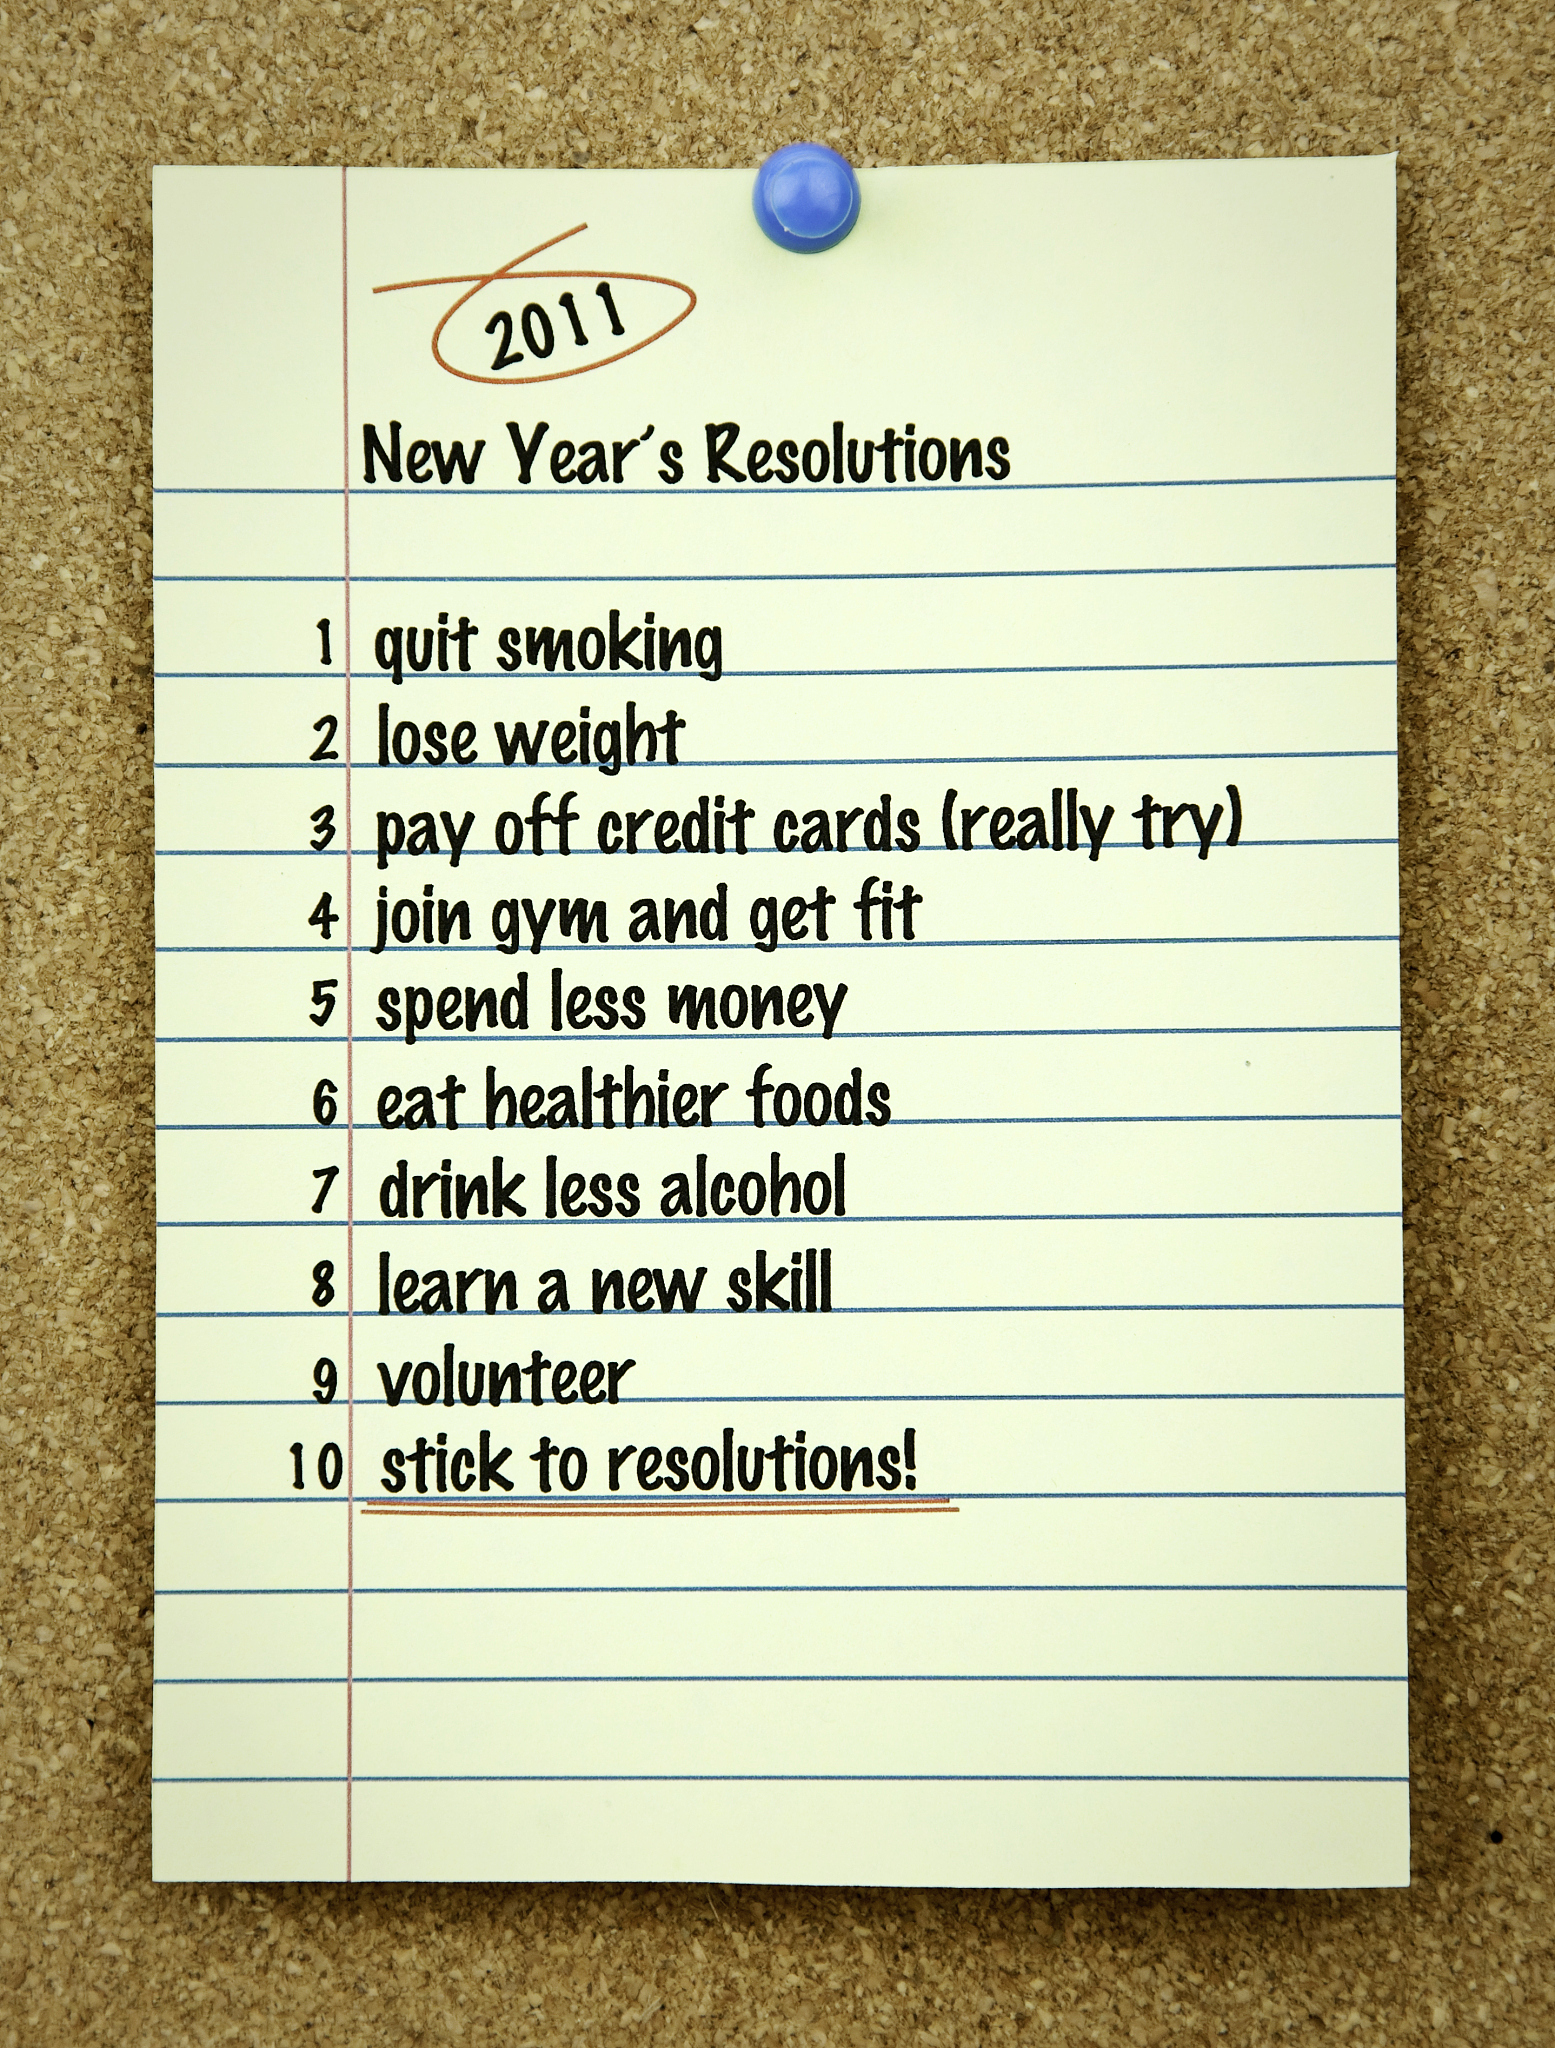 2011
New Year's Resolutions
1 quit smoking
2 lose weight
3 pay off credit cards (really try)
4 join gym and get fit
5 spend less money
6 eat healthier foods
7 drink less alcohol
8 learn a new skill
9 volunteer
10 stick to resolutions!